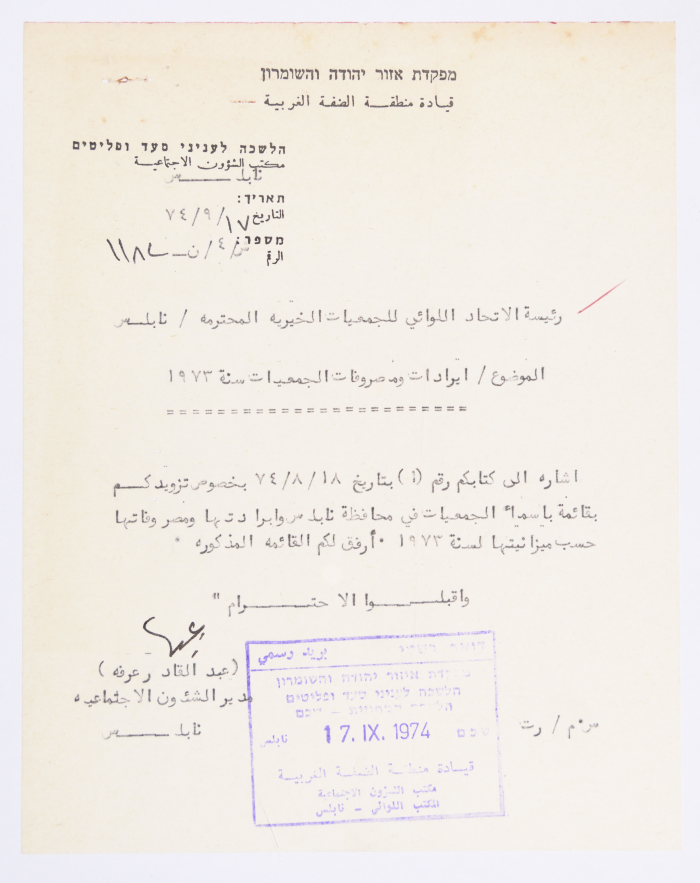 מפקדת אזור יהודה והשומרון
قيادة منطقــة الضفة الغربية
הלשכה לעניני סעד ופליטים
مكتب الشؤون الاجتماعية
نابلــــس
תאריך:
التاريخ ١٧/ ٩/ ٧٤
מספר:
الرقم س/ ٤/ ن
رئيسة الاتحاد اللوائي للجمعيات الخيريه المحترمه / نابلــس
الموضوع / ايرادات ومصروفات الجمعيات سنة ١٩٧٣
==========================
اشاره الى كتابكم رقم (١) بتاريخ ٧٤/٨/١٨ بخصوص تزويدكــم
بقائمة باسماء الجمعيات في محافظة نابلس وايرادتها ومصروفاتها
حسب ميزانيتها لسنة ١٩٧٣ ٠ أرفق لكم القائمه المذكوره ٠
واقبلــــوا الاحتــــرام "
(عبد القادر عرفه)
مدير الشئون الاجتماعيه
نابلــــس
س٠م / رت
דואר רשמי بريد رسمي
מפקדת אזור יהודה והשומרון
הלשכה לעניני סעד ופליטים
הלשכה המחוזית - שכם
שכם 17. IX. 1974 نابلس
قيادة منطقة الضفة الغربية
مكتب الشؤون الاجتماعية
المكتب اللوائي - نابلس